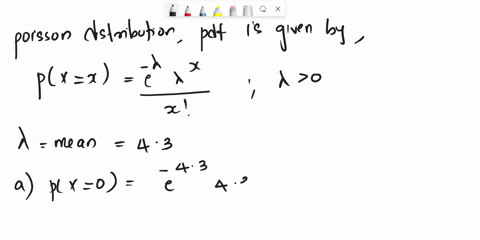 poisson distribution, pdf is given by,
p(x=x) = e^-λ λ^x / x! ; λ>0
λ = mean = 4.3
a) p(x=0) = e^-4.3 4.